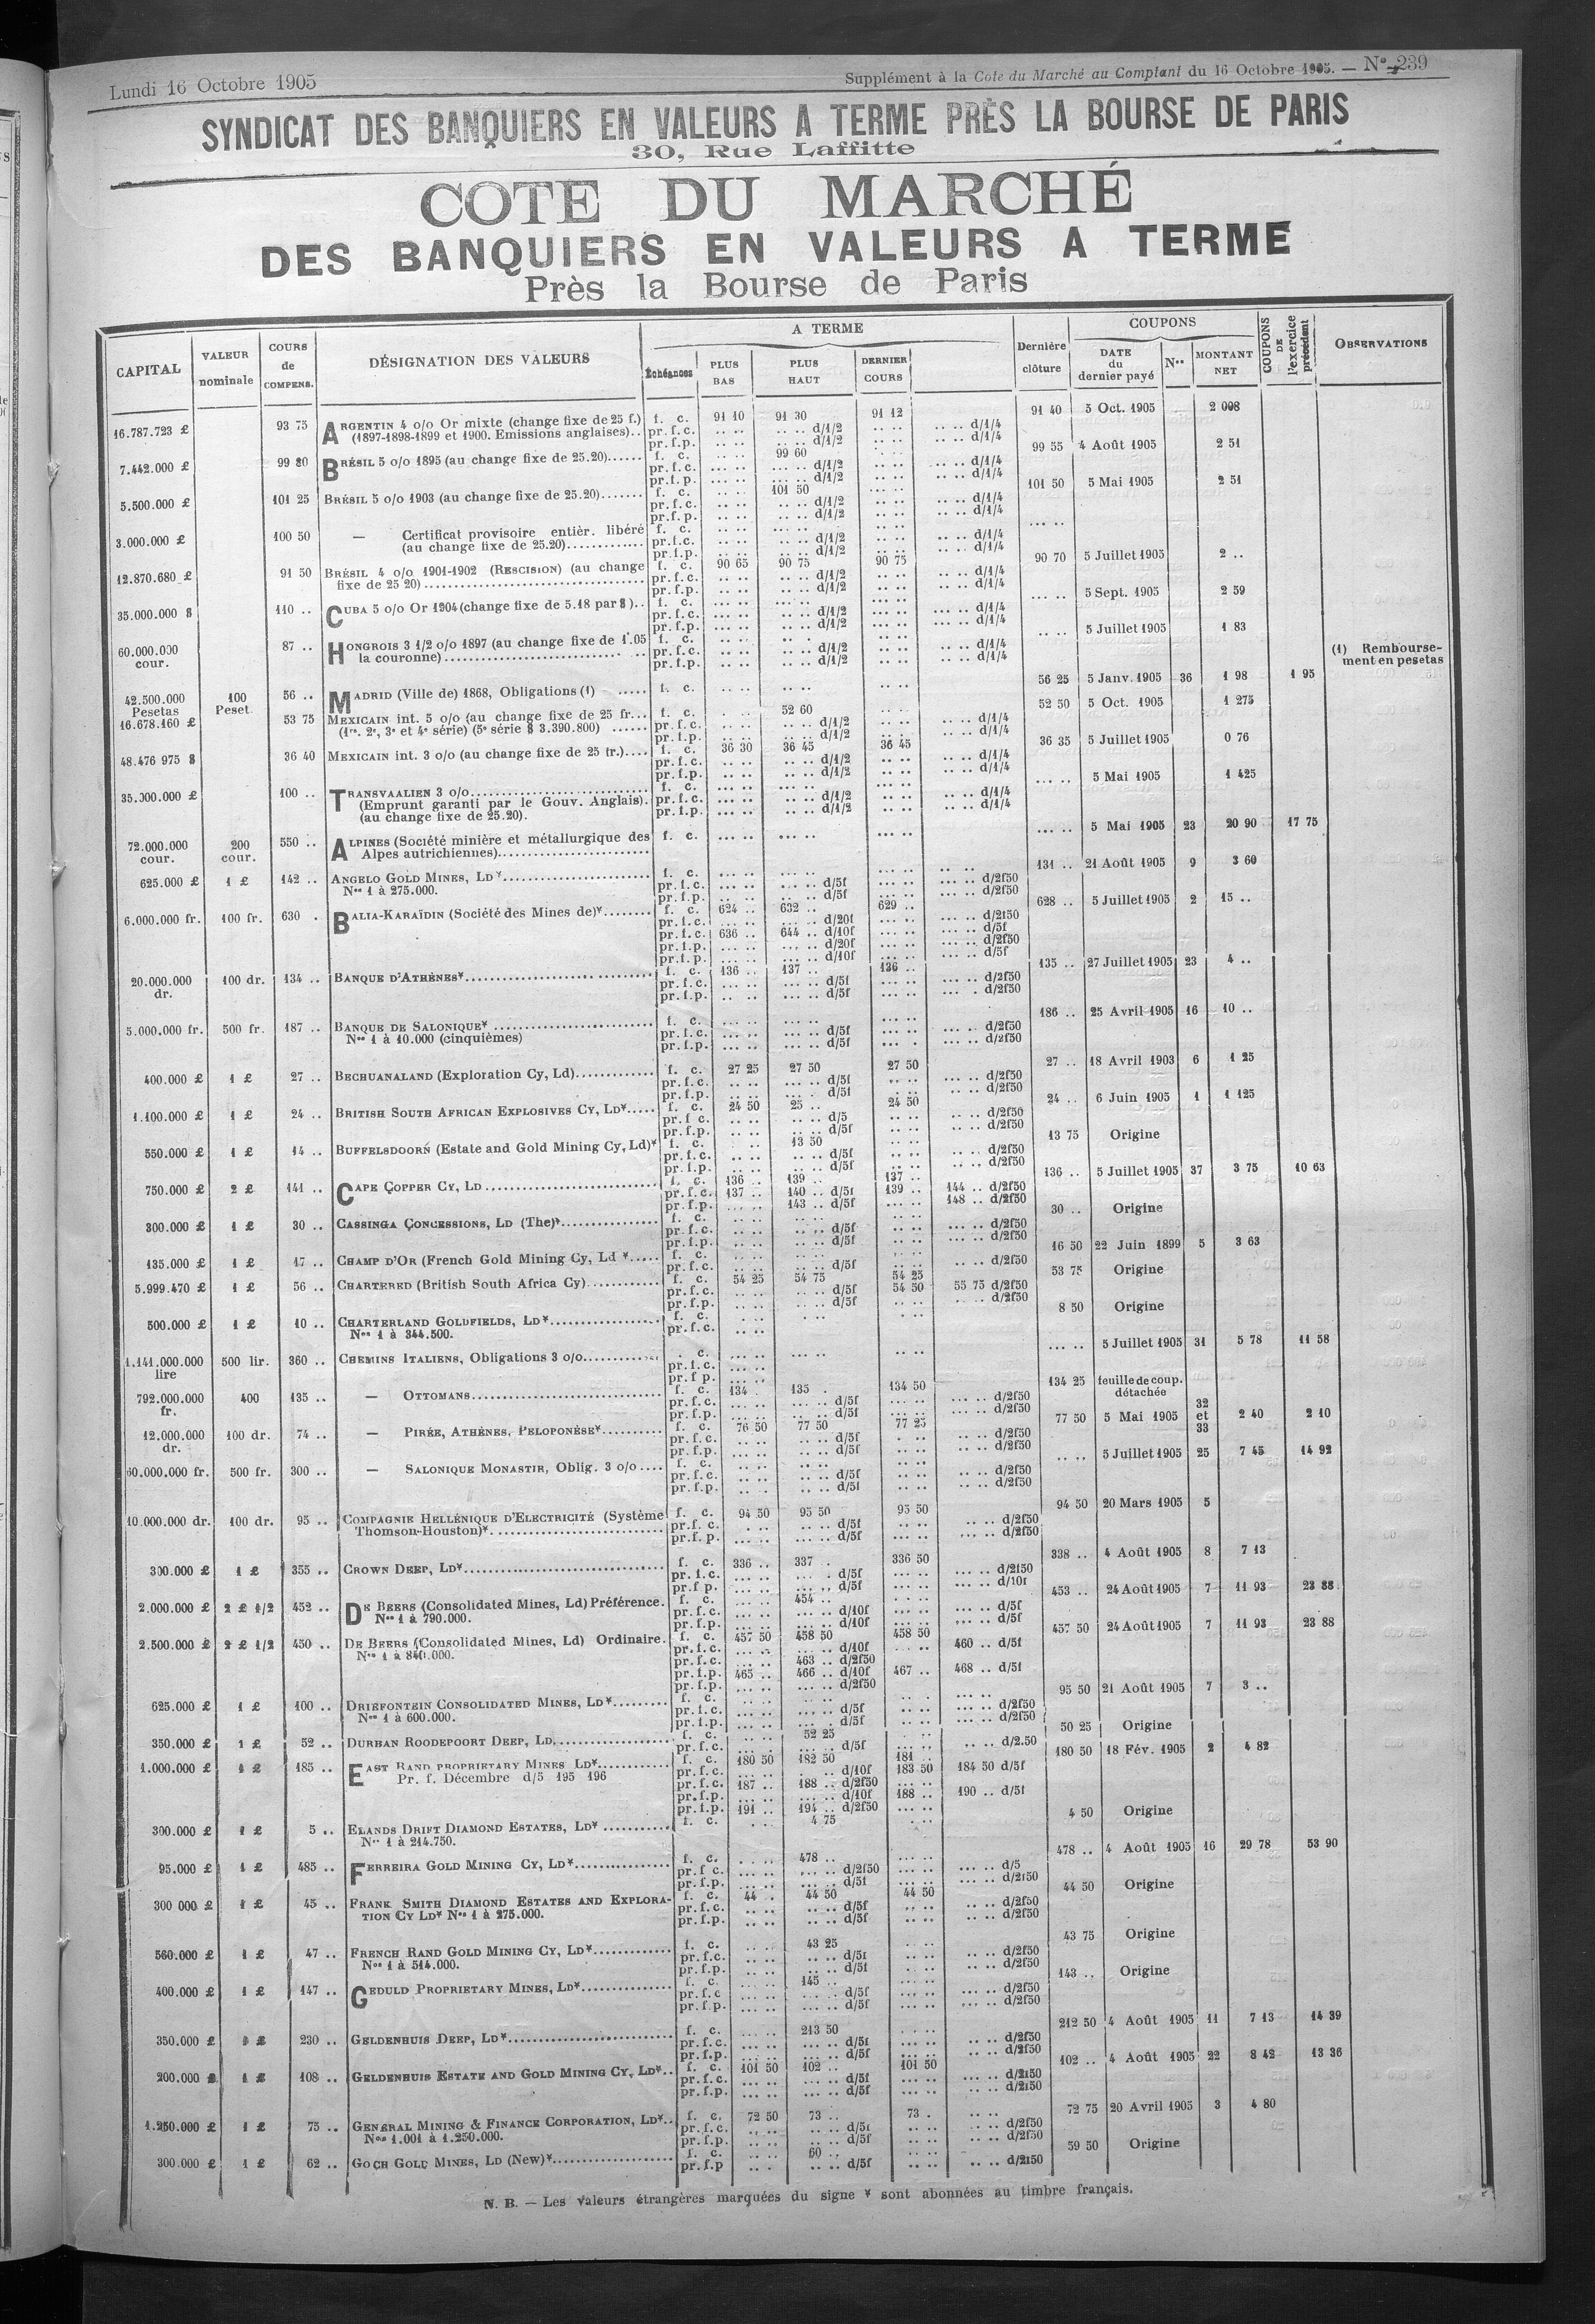 Lundi 16 Octobre 1905
Supplément à la Cote du Marché au Comptant du 16 Octobre 1905. — N° 239
SYNDICAT DES BANQUIERS EN VALEURS A TERME PRÈS LA BOURSE DE PARIS
30, Rue Laffitte
COTE DU MARCHÉ
DES BANQUIERS EN VALEURS A TERME
Près la Bourse de Paris
CAPITAL VALEUR nominale COURS de COMPENS. DÉSIGNATION DES VALEURS A TERME Échéances PLUS BAS PLUS HAUT DERNIER COURS Dernière clôture COUPONS DATE du dernier payé Nos MONTANT NET COUPONS DE l'exercice précédent OBSERVATIONS
16.787.723 £ 93 75 ARGENTIN 4 o/o Or mixte (change fixe de 25 f.) f. c. 91 10 91 30 91 12 91 40 5 Oct. 1905 2 008
(1897-1898-1899 et 1900. Emissions anglaises).. pr.f.c. .. .. .. .. d/1/2 .. .. .. .. d/1/4
pr.f.p. .. .. .. .. d/1/2 .. .. .. .. d/1/4
7.442.000 £ 99 80 BRÉSIL 5 o/o 1895 (au change fixe de 25.20)...... f. c. .. .. 99 60 .. .. 99 55 4 Août 1905 2 51
pr.f.c. ... .. ... .. d/1/2 .. .. .. .. d/1/4
pr.f.p. ... .. ... .. d/1/2 .. .. .. .. d/1/4
5.500.000 £ 101 25 BRÉSIL 5 o/o 1903 (au change fixe de 25.20)....... f. c. .. .. 101 50 101 50 5 Mai 1905 2 51
pr.f.c. .. .. .. .. d/1/2 .. .. .. .. d/1/4
pr.f.p. .. .. .. .. d/1/2 .. .. .. .. d/1/4
3.000.000 £ 100 50 — Certificat provisoire entièr. libéré f. c. .. .. ... .. .. .. ... ..
(au change fixe de 25.20)............. pr.f.c. .. .. .. .. d/1/2 .. .. .. .. d/1/4
pr.f.p. .. .. .. .. d/1/2 .. .. .. .. d/1/4
12.870.680 £ 91 50 BRÉSIL 4 o/o 1901-1902 (RESCISION) (au change f. c. 90 65 90 75 90 75 90 70 5 Juillet 1905 2 ..
fixe de 25 20)................................... pr.f.c. .. .. .. .. d/1/2 .. .. .. .. d/1/4
pr.f.p. .. .. .. .. d/1/2 .. .. .. .. d/1/4
35.000.000 $ 110 .. CUBA 5 o/o Or 1904 (change fixe de 5.18 par $).. f. c. ... .. ... .. ... .. ... .. 5 Sept. 1905 2 59
pr.f.c. ... .. ... .. d/1/2 ... .. ... .. d/1/4
pr.f.p. ... .. ... .. d/1/2 ... .. ... .. d/1/4
60.000.000 cour. 87 .. HONGROIS 3 1/2 o/o 1897 (au change fixe de 1.05 f. c. .. .. .. .. .. .. .. .. 5 Juillet 1905 1 83
la couronne)................................ pr.f.c. .. .. .. .. d/1/2 .. .. .. .. d/1/4
pr.f.p. .. .. .. .. d/1/2 .. .. .. .. d/1/4
(1) Rembourse-
ment en pesetas
42.500.000 Pesetas 100 Peset. 56 .. MADRID (Ville de) 1868, Obligations (1) ..... f. c. .. .. .. .. .. .. 56 25 5 Janv. 1905 36 1 98 1 95
16.678.160 £ 53 75 MEXICAIN int. 5 o/o (au change fixe de 25 fr... f. c. .. .. 52 60 .. .. 52 50 5 Oct. 1905 1 275
(1re, 2e, 3e et 4e série) (5e série $ 3.390.800) ...... pr.f.c. .. .. .. .. d/1/2 .. .. .. .. d/1/4
pr.f.p. .. .. .. .. d/1/2 .. .. .. .. d/1/4
48.476 975 $ 36 40 MEXICAIN int. 3 o/o (au change fixe de 25 fr.).... f. c. 36 30 36 45 36 45 36 35 5 Juillet 1905 0 76
pr.f.c. .. .. .. .. d/1/2 .. .. .. .. d/1/4
pr.f.p. .. .. .. .. d/1/2 .. .. .. .. d/1/4
35.000.000 £ 100 .. TRANSVAALIEN 3 o/o............................ f. c. ... .. ... .. ... .. ... .. 5 Mai 1905 1 425
(Emprunt garanti par le Gouv. Anglais). pr.f.c. ... .. ... .. d/1/2 .. .. .. .. d/1/4
(au change fixe de 25.20). pr.f.p. ... .. ... .. d/1/2 .. .. .. .. d/1/4
72.000.000 cour. 200 cour. 550 .. ALPINES (Société minière et métallurgique des f. c. ... .. ... .. ... .. ... .. 5 Mai 1905 23 20 90 17 75
Alpes autrichiennes)........................
625.000 £ 1 £ 142 .. ANGELO GOLD MINES, LD*........................ f. c. ... .. ... .. ... .. 131 .. 21 Août 1905 9 3 60
Nos 1 à 275.000. pr.f.c. ... .. ... .. d/5f ... .. ... .. d/2f50
pr.f.p. ... .. ... .. d/5f ... .. ... .. d/2f50
6.000.000 fr. 100 fr. 630 . BALIA-KARAÏDIN (Société des Mines de)*........ f. c. 624 .. 632 .. 629 .. 628 .. 5 Juillet 1905 2 15 ..
pr.f.c. ... .. ... .. d/20f ... .. ... .. d/2f50
pr.f.c. 636 .. 644 .. d/10f ... .. ... .. d/5f
pr.f.p. ... .. ... .. d/20f ... .. ... .. d/2f50
pr.f.p. ... .. ... .. d/10f ... .. ... .. d/5f
20.000.000 dr. 100 dr. 134 .. BANQUE D'ATHÈNES*.............................. f. c. 136 .. 137 .. 136 .. 135 .. 27 Juillet 1905 23 4 ..
pr.f.c. ... .. ... .. d/5f ... .. ... .. d/2f50
pr.f.p. ... .. ... .. d/5f ... .. ... .. d/2f50
5.000.000 fr. 500 fr. 187 .. BANQUE DE SALONIQUE* ......................... f. c. ... .. ... .. ... .. 186 .. 25 Avril 1905 16 10 ..
Nos 1 à 10.000 (cinquièmes) pr.f.c. ... .. ... .. d/5f ... .. ... .. d/2f50
pr.f.p. ... .. ... .. d/5f ... .. ... .. d/2f50
400.000 £ 1 £ 27 .. BECHUANALAND (Exploration Cy, Ld)............. f. c. 27 25 27 50 27 50 27 .. 18 Avril 1903 6 1 25
pr.f.c. .. .. ... .. d/5f .. .. .. .. d/2f50
pr.f.p. .. .. ... .. d/5f .. .. .. .. d/2f50
1.100.000 £ 1 £ 24 .. BRITISH SOUTH AFRICAN EXPLOSIVES CY, LD*..... f. c. 24 50 25 .. 24 50 24 .. 6 Juin 1905 1 1 125
pr.f.c. .. .. .. .. d/5 .. .. .. .. d/2f50
pr.f.p. .. .. .. .. d/5f .. .. .. .. d/2f50
550.000 £ 1 £ 14 .. BUFFELSDOORN (Estate and Gold Mining Cy, Ld)* f. c. .. .. 13 50 .. .. 13 75 Origine
pr.f.c. .. .. .. .. d/5f .. .. .. .. d/2f50
pr.f.p. .. .. .. .. d/5f .. .. .. .. d/2f50
750.000 £ 2 £ 141 .. CAPE COPPER CY, LD............................. f. c. 136 .. 139 .. 137 .. 136 .. 5 Juillet 1905 37 3 75 10 63
pr.f.c. 137 .. 140 .. d/5f 139 .. 144 .. d/2f50
pr.f.p. ... .. 143 .. d/5f ... .. 148 .. d/2f50
300.000 £ 1 £ 30 .. CASSINGA CONCESSIONS, LD (The)*................ f. c. .. .. .. .. .. .. 30 .. Origine
pr.f.c. .. .. .. .. d/5f .. .. ... .. d/2f50
pr.f.p. .. .. .. .. d/5f .. .. ... .. d/2f50
135.000 £ 1 £ 17 .. CHAMP D'OR (French Gold Mining Cy, Ld *..... f. c. .. .. .. .. .. .. 16 50 22 Juin 1899 5 3 63
pr.f.c. .. .. .. .. d/5f .. .. .. .. d/2f50
5.999.470 £ 1 £ 56 .. CHARTERED (British South Africa Cy)............ f. c. 54 25 54 75 54 25 53 75 Origine
pr.f.c. .. .. .. .. d/5f 54 50 55 75 d/2f50
pr.f.p. .. .. .. .. d/5f .. .. .. .. d/2f50
500.000 £ 1 £ 10 .. CHARTERLAND GOLDFIELDS, LD*.................. f. c. .. .. .. .. .. .. 8 50 Origine
Nos 1 à 344.500. pr.f.c. .. ..
1.141.000.000 lire 500 lir. 360 .. CHEMINS ITALIENS, Obligations 3 o/o............ . c. ... .. ... .. .. .. ... .. 5 Juillet 1905 31 5 78 11 58
pr.f.c. ... ..
pr.f p. ... ..
792.000.000 fr. 400 135 .. — OTTOMANS.............................. f. c. 134 . 135 . 134 50 134 25 feuille de coup. détachée
pr.f.c. ... .. ... .. d/5f ... .. ... .. d/2f50
pr.f.p. ... .. ... .. d/5f ... .. ... .. d/2f50
12.000.000 dr. 100 dr. 74 .. — PIRÉE, ATHÈNES, PELOPONÈSE*.......... f. c. 76 50 77 50 77 25 77 50 5 Mai 1905 32 et 33 2 40 2 10
pr.f.c. .. .. .. .. d/5f . .. .. .. d/2f50
pr.f.p. .. .. .. .. d/5f .. .. .. .. d/2f50
60.000.000 fr. 500 fr. 300 .. — SALONIQUE MONASTIR, Oblig. 3 o/o.... f. c. .. .. .. .. .. .. .. .. 5 Juillet 1905 25 7 45 14 92
pr.f.c. .. .. .. .. d/5f .. .. .. .. d/2f50
pr.f.p. .. .. .. .. d/5f .. .. .. .. d/2f50
10.000.000 dr. 100 dr. 95 .. COMPAGNIE HELLÉNIQUE D'ELECTRICITÉ (Système f. c. 94 50 95 50 95 50 94 50 20 Mars 1905 5
Thomson-Houston)*............................ pr.f.c. .. .. ... .. d/5f .. .. ... .. d/2f50
pr.f.p. ... .. ... .. d/5f ... .. ... .. d/2f50
300.000 £ 1 £ 355 .. CROWN DEEP, LD*................................ f. c. 336 .. 337 . 336 50 338 .. 4 Août 1905 8 7 13
pr.f.c. ... .. ... .. d/5f ... .. ... .. d/2f50
pr.f p. ... .. ... .. d/5f ... .. ... .. d/10f
2.000.000 £ 2 £ 1/2 452 .. DE BEERS (Consolidated Mines, Ld) Préférence. f. c. ... .. 454 .. ... .. 453 .. 24 Août 1905 7 11 93 23 88
Nos 1 à 790.000. pr.f.c. ... .. ... .. d/10f ... .. ... .. d/5f
pr.f.p. ... .. ... .. d/10f ... .. ... .. d/5f
2.500.000 £ 2 £ 1/2 450 .. DE BEERS (Consolidated Mines, Ld) Ordinaire. f. c. 457 50 458 50 458 50 457 50 24 Août 1905 7 11 93 23 88
Nos 1 à 840.000. pr.f.c. ... .. ... .. d/10f .. .. 460 .. d/5f
pr.f.c. ... .. 463 .. d/2f50
pr.f.p. 465 .. 466 .. d/10f 467 .. 468 .. d/5f
pr.f.p. ... .. ... .. d/2f50
625.000 £ 1 £ 100 .. DRIEFONTEIN CONSOLIDATED MINES, LD*......... f. c. .. .. .. .. .. . ... .. 95 50 21 Août 1905 7 3 ..
Nos 1 à 600.000. pr.f.c. ... .. ... .. d/5f ... .. ... .. d/2f50
pr.f.p. ... .. ... .. d/5f ... .. ... .. d/2f50
350.000 £ 1 £ 52 .. DURBAN ROODEPOORT DEEP, LD................... f. c. .. .. 52 25 .. .. 50 25 Origine
pr.f.c. .. .. ... .. d/5f .. .. .. .. d/2.50
1.000.000 £ 1 £ 185 .. EAST RAND PROPRIETARY MINES LD*............ f. c. 180 50 182 50 181 .. 180 50 18 Fév. 1905 2 4 82
Pr. f. Décembre d/5 195 196 pr.f.c. ... .. . .. d/10f 183 50 184 50 d/5f
pr.f.c. 187 .. 188 .. d/2f50 ... ..
pr.f.p. ... .. ... .. d/10f 188 .. 190 .. d/5f
pr.f.p. 191 .. 194 .. d/2f50 ... ..
300.000 £ 1 £ 5 .. ELANDS DRIFT DIAMOND ESTATES, LD* ........... f. c. . .. 4 75 . .. 4 50 Origine
Nos 1 à 214.750.
95.000 £ 1 £ 485 .. FERREIRA GOLD MINING CY, LD*................ f. c. . .. 478 .. ... .. 478 .. 4 Août 1905 16 29 78 53 90
pr.f c. ... .. ... .. d/2f50 ... .. ... .. d/5
pr.f.p. ... .. ... .. d/5f ... .. ... .. d/2f50
300 000 £ 1 £ 45 .. FRANK SMITH DIAMOND ESTATES AND EXPLORA- f. c. 44 . 44 50 44 50 44 50 Origine
TION CY LD* Nos 1 à 275.000. pr.f.c. .. .. .. .. d/5f .. .. .. .. d/2f50
pr.f.p. .. .. .. .. d/5f .. .. .. .. d/2f50
560.000 £ 1 £ 47 .. FRENCH RAND GOLD MINING CY, LD*............ f. c. .. .. 43 25 .. .. 43 75 Origine
Nos 1 à 514.000. pr.f.c. .. .. .. .. d/5f .. .. .. .. d/2f50
pr.f.p. .. .. .. .. d/5f .. .. .. .. d/2f50
400.000 £ 1 £ 147 .. GEDULD PROPRIETARY MINES, LD*............... f. c. ... .. 145 .. ... .. 143 .. Origine
pr.f.c ... .. ... .. d/5f ... .. ... .. d/2f50
pr.f.p. ... .. ... .. d/5f ... .. ... .. d/2f50
350.000 £ 1 £ 230 .. GELDENHUIS DEEP, LD*.......................... f. c. ... .. 213 50 ... .. 212 50 4 Août 1905 11 7 13 14 39
pr.f.c. ... .. ... .. d/5f ... .. .. .. d/2f50
pr.f.p. ... .. ... .. d/5f ... .. .. .. d/2f50
200.000 £ 1 £ 108 .. GELDENHUIS ESTATE AND GOLD MINING CY, LD*.. f. c. 101 50 102 .. 101 50 102 .. 4 Août 1905 22 8 42 13 36
pr.f.c. ... .. ... .. d/5f ... .. ... .. d/2f50
pr.f.p. ... .. ... .. d/5f ... .. ... .. d/2f50
1.250.000 £ 1 £ 75 .. GENERAL MINING & FINANCE CORPORATION, LD*.. f. c. 72 50 73 .. 73 . .. .. 72 75 20 Avril 1905 3 4 80
Nos 1.001 à 1.250.000. pr.f.c. .. .. .. .. d/5f .. .. .. .. d/2f50
pr.f.p. .. .. .. .. d/5f .. .. .. .. d/2f50
300.000 £ 1 £ 62 .. GOCH GOLD MINES, LD (New)*.................. f. c. .. .. 60 .. .. .. 59 50 Origine
pr.f.p .. . .. .. d/5f .. .. .. .. d/2f50
N. B. — Les Valeurs étrangères marquées du signe * sont abonnées au timbre français.